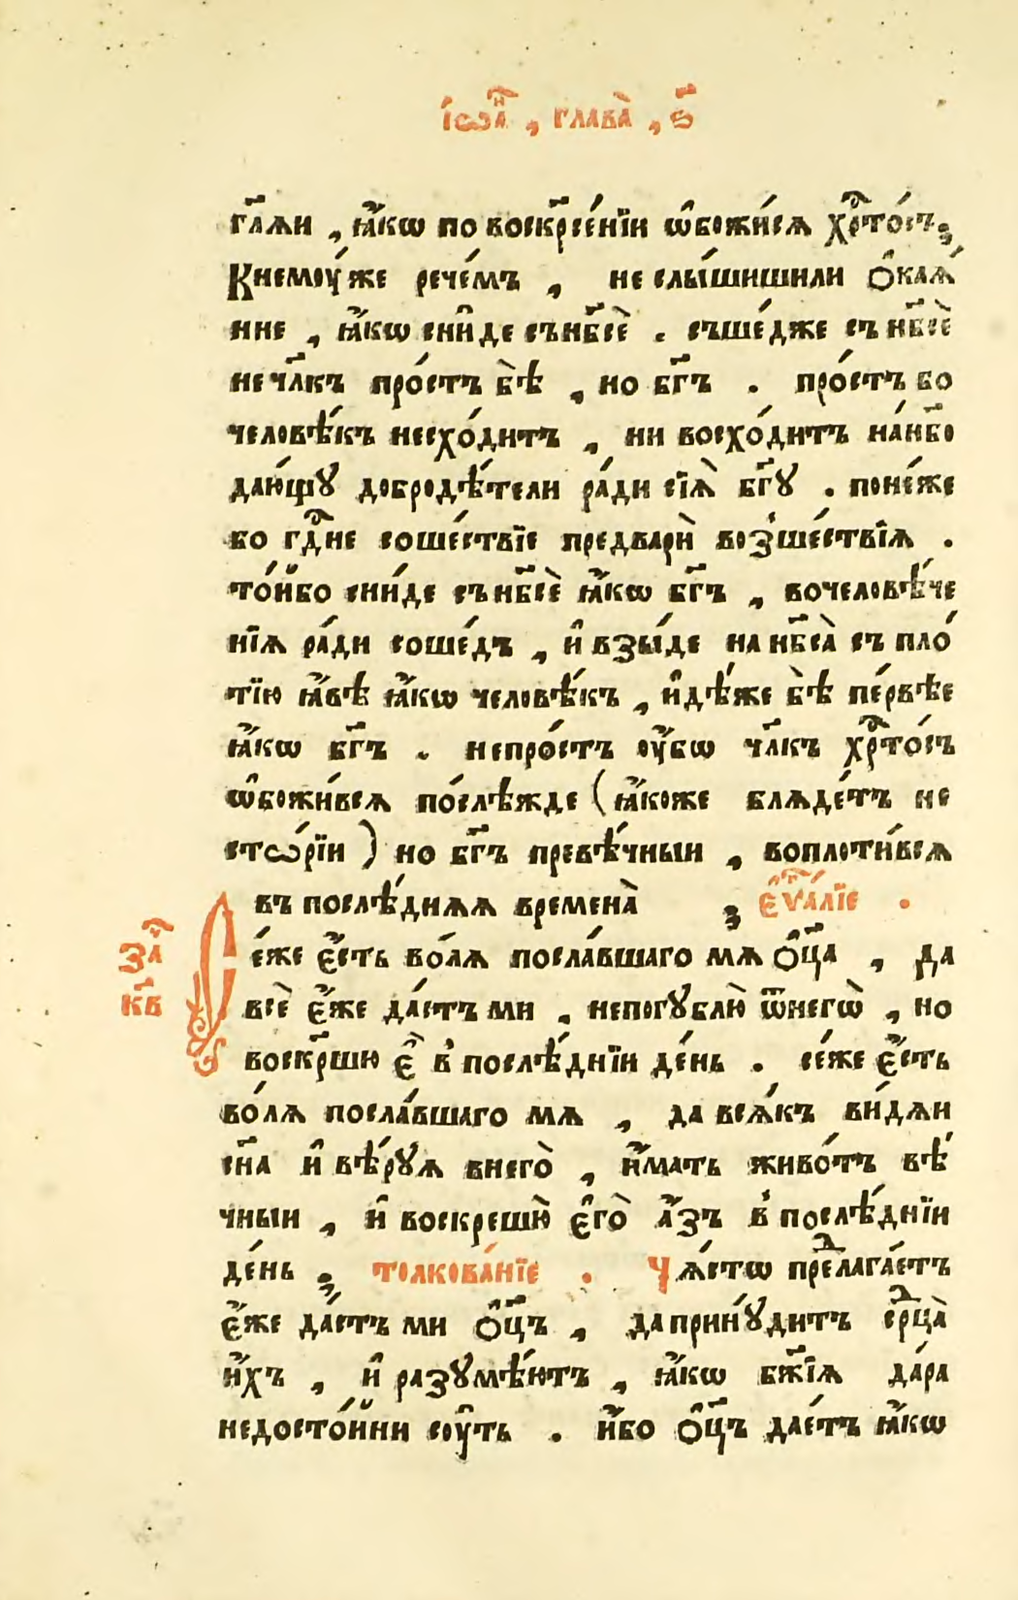 І҆ѡа҆н , глава̀ , ѕ҃
гл҃ѧи , ꙗ҆́кѡ по воскр҃се́нїи ѡ҆божи́сѧ хрⷭ҇то́съ ;
Кнемꙋ́же рече́мъ , не слы́шишили ѻ҆каѧ́
нне , ꙗ҆́кѡ сни́де съ нб҃сѐ . съше́дже съ нб҃сѐ
не чл҃къ про́стъ бѣ̀ , но бг҃ъ . про́стъ бо
человѣ́къ несхо́дитъ , ни восхо́дитъ на́нб҃о
даю́щꙋ добродѣ́тели ра́ди сїѧ̀ бг҃ꙋ . поне́же
бо гдⷭ҇не соше́ствїе предварѝ воз̾ше́ствїѧ .
то́йбо сни́де съ нб҃сѐ ꙗ҆́кѡ бг҃ъ , вочеловѣ́че
нїѧ ра́ди соше́дъ , и҆ взы́де на нб҃са̀ съ пло́
тїю ꙗ҆́вѣ ꙗ҆́кѡ человѣ́къ , и҆дѣ́же бѣ̀ пе́рвѣе
ꙗ҆́кѡ бг҃ъ . непро́стъ ᲂу҆́бѡ чл҃къ хрⷭ҇то́съ
ѡ҆божи́всѧ по́слѣжде ( ꙗ҆́коже блѧде́тъ не
стѡ́рїи ) но бг҃ъ превѣ́чныи , воплоти́всѧ
въ послѣ́днѧѧ времена̀ ; є҆ѵⷢ҇а́лїе .
Се́же є҆́сть во́лѧ посла́вшаго мѧ ѻ҆ц҃а̀ , да
всѐ є҆́же дае́тъ ми , непогꙋблю̀ ѿнегѡ̀ , но
воскр҃шю є҆̀ в̾ послѣ́днїи де́нь . се́же є҆́сть
во́лѧ посла́вшаго мѧ , да всѧ́къ ви́дѧи
сн҃а и҆ вѣ́рꙋѧ внего̀ , и҆́мать живо́тъ вѣ́
чныи , и҆ воскрешю̀ є҆го̀ а҆́зъ в̾ послѣ́днїи
де́нь ; толкова́нїе . Чѧ́стѡ преⷣлага́етъ
є҆́же дае́тъ ми ѻ҆ц҃ъ , да прину́дитъ срⷣца̀
и҆́хъ , и҆ разꙋмѣ́ютъ , ꙗ҆́кѡ бж҃їѧ да́ра
недосто́йни сꙋ́ть . и҆́бо ѻ҆ц҃ъ дае́тъ ꙗ҆́кѡ
заⷱ҇
кв҃